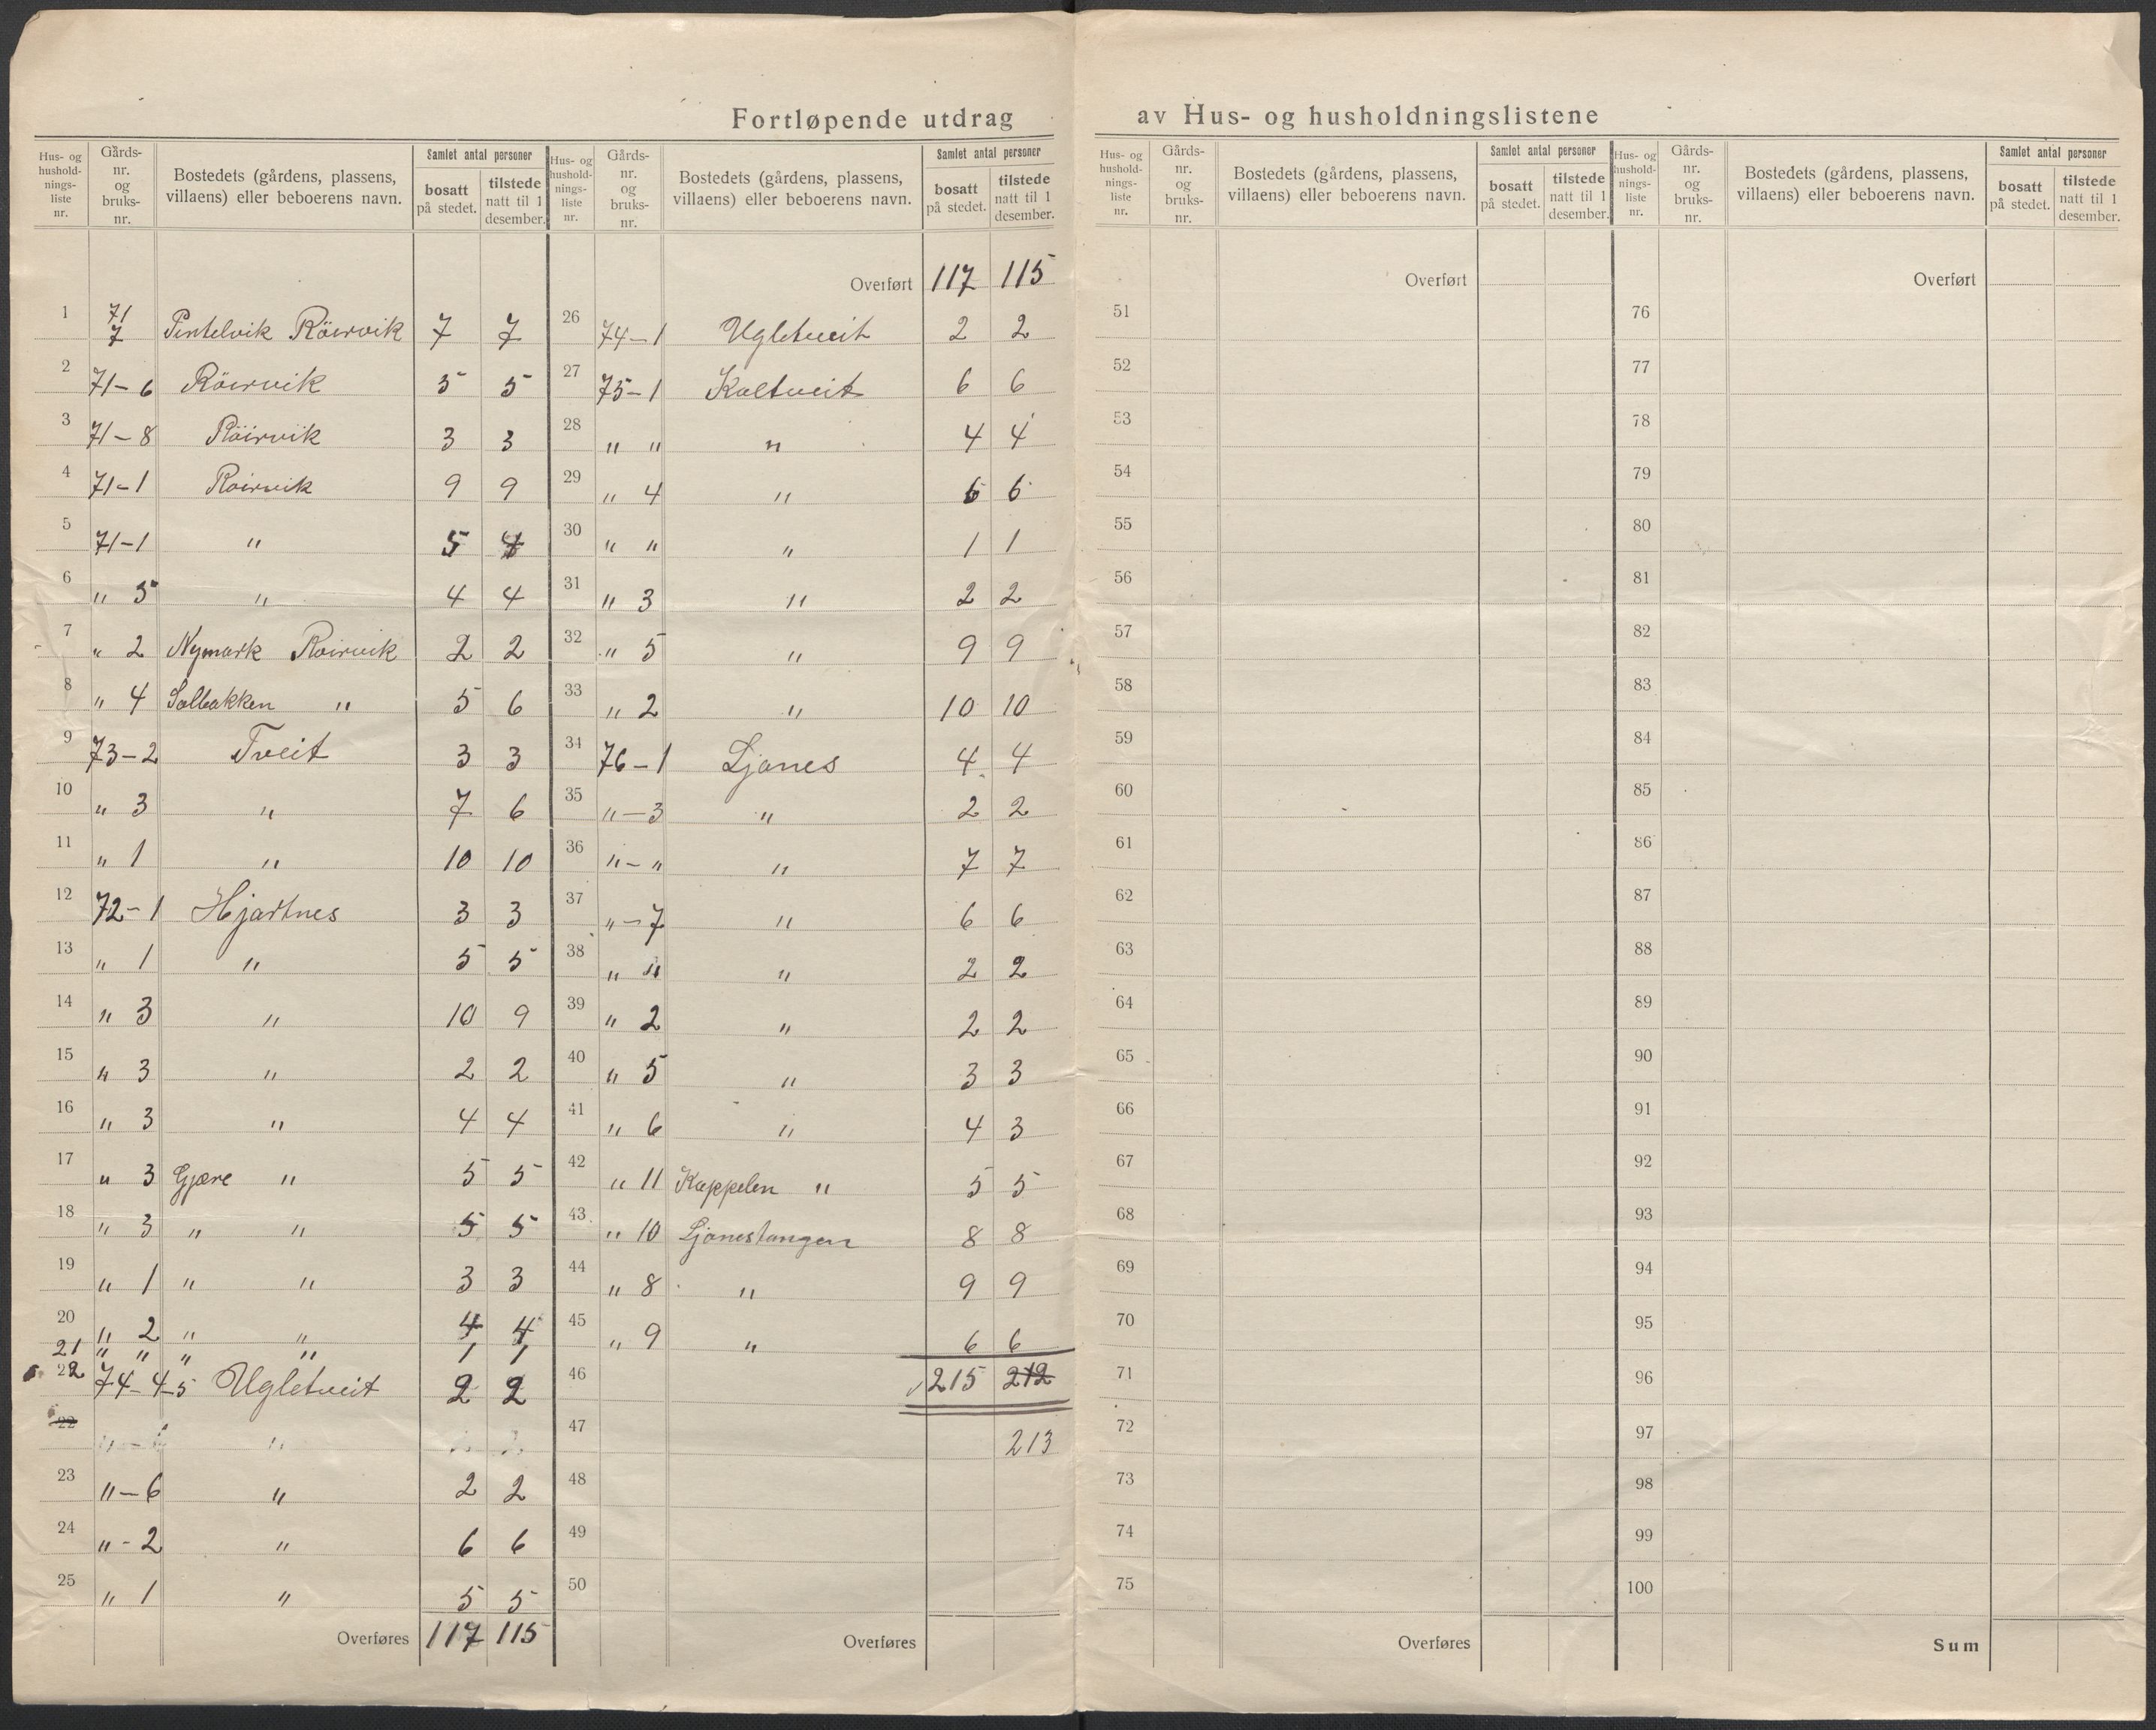 Fortløpende utdrag av Hus- og husholdningslistene
Hus- og husholdningsliste nr. | Gårds- nr. og bruks- nr. | Bostedets (gårdens, plassens, villaens) eller beboerens navn. | Samlet antal personer | bosatt på stedet. | tilstede natt til 1 desember.
1 71 7 Pintelvik Röirvik 7 7
2 71-6 Röirvik 5 5
3 71-8 Röirvik 3 3
4 71-1 Roirvik 9 9
5 71-1 " 5 4
6 " 5 " 4 4
7 " 2 Nymark Roirvik 2 2
8 " 4 Solbakken " 5 6
9 73-2 Tveit 3 3
10 " 3 " 7 6
11 " 1 " 10 10
12 72-1 Hjartnes 3 3
13 " 1 " 5 5
14 " 3 " 10 9
15 " 3 " 2 2
16 " 3 " 4 4
17 " 3 Gjære " 5 5
18 " 3 " " 5 5
19 " 1 " " 3 3
20 " 2 " " 4 4
21 " " " " 1 1
22 74-4-5 Ugletveit 2 2
22
23 "-6 " 2 2
24 "-2 " 6 6
25 " 1 " 5 5
Overføres 117 115
Hus- og husholdningsliste nr. | Gårds- nr. og bruks- nr. | Bostedets (gårdens, plassens, villaens) eller beboerens navn. | Samlet antal personer | bosatt på stedet. | tilstede natt til 1 desember.
Overført 117 115
26 74-1 Ugletveit 2 2
27 75-1 Koltveit 6 6
28 " " " 4 4
29 " 4 " 6 6
30 " " " 1 1
31 " 3 " 2 2
32 " 5 " 9 9
33 " 2 " 10 10
34 76-1 Ljones 4 4
35 "-3 " 2 2
36 "-" " 7 7
37 "-7 " 6 6
38 " " " 2 2
39 " 2 " 2 2
40 " 5 " 3 3
41 " 6 " 4 3
42 " 11 Kappelen " 5 5
43 " 10 Ljonestangen 8 8
44 " 8 " 9 9
45 " 9 " 6 6
46 215 212
47 213
48
49
50
Overføres
Hus- og husholdningsliste nr. | Gårds- nr. og bruks- nr. | Bostedets (gårdens, plassens, villaens) eller beboerens navn. | Samlet antal personer | bosatt på stedet. | tilstede natt til 1 desember.
Overført
51
52
53
54
55
56
57
58
59
60
61
62
63
64
65
66
67
68
69
70
71
72
73
74
75
Overføres
Hus- og husholdningsliste nr. | Gårds- nr. og bruks- nr. | Bostedets (gårdens, plassens, villaens) eller beboerens navn. | Samlet antal personer | bosatt på stedet. | tilstede natt til 1 desember.
Overført
76
77
78
79
80
81
82
83
84
85
86
87
88
89
90
91
92
93
94
95
96
97
98
99
100
Sum